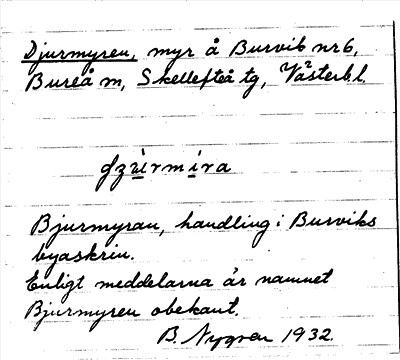 Djurmyren, myr å Burvik nr 6,
Bureå m, Skellefteå tg, Västerb l.
Bjurmyran, handling i Burviks
byaskrin.
Enligt meddelarna är namnet
Bjurmyren obekant.
B. Nygren 1932.